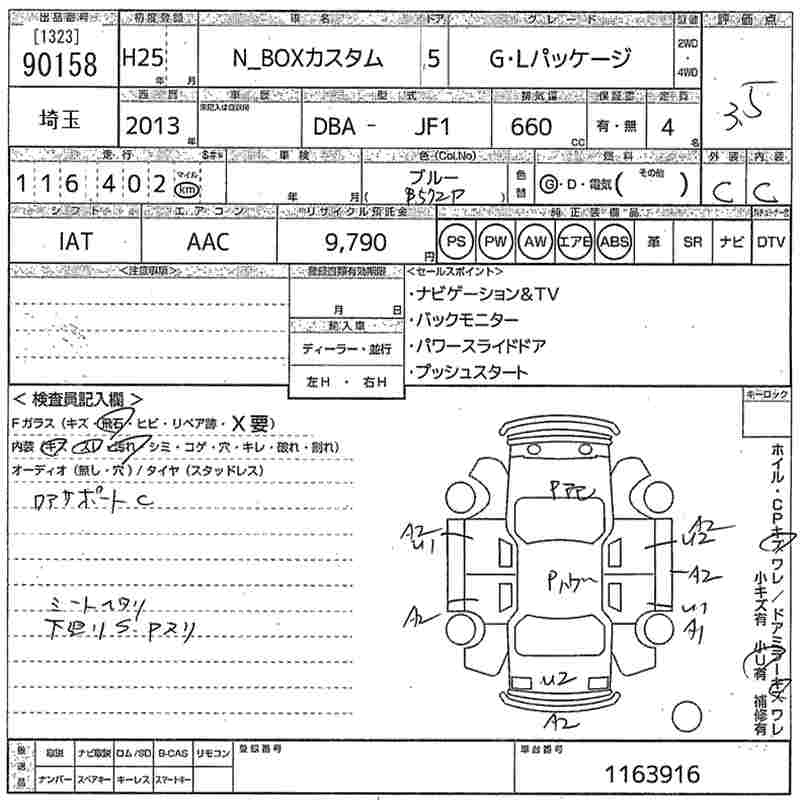 出品番号 初度登録 車名 ドア グレード 型値 評価点
[1323]
90158 H25 年 月 N_BOXカスタム 5 G・Lパッケージ 2WD・4WD 3.5
埼玉 西暦 車歴 型式 排気量 保証書 定員
2013 年 DBA - JF1 660 cc 有・無 4 名
走行 車検 色(Col,No) 燃料 外装 内装
116402 マイル km 年 月 ブルー 色替 G・D・電気( その他 ) C C
B572P
シフト エアコン リサイクル預託金 純正装備品
IAT AAC 9,790 円 PS PW AW エアB ABS 革 SR ナビ DTV
<注意事項> 登録書類有効期限 <セールスポイント>
月 日 ・ナビゲーション&TV
輸入車 ・バックモニター
ディーラー・並行 ・パワースライドドア
左H ・ 右H ・プッシュスタート
< 検査員記入欄 > キーロック
Fガラス(キズ・飛石・ヒビ・リペア跡・X要)
内装(キズ・スレ・汚れ・シミ・コゲ・穴・キレ・破れ・割れ)
オーディオ(無し・穴)/タイヤ(スタッドレス)
ロアサポートC
シートヘタリ
下廻りS・Pスリ
A2
U1
A2
A2
U2
A2
U1
A1
U2
A2
ホイル・CPキズワレ/ドアミラーキズワレ
小キズ有 小U有 補修有
後送品 取説 ナビ取説 ロム/SD B-CAS リモコン 登録番号 車台番号
ナンバー スペアキー キーレス スマートキー 1163916